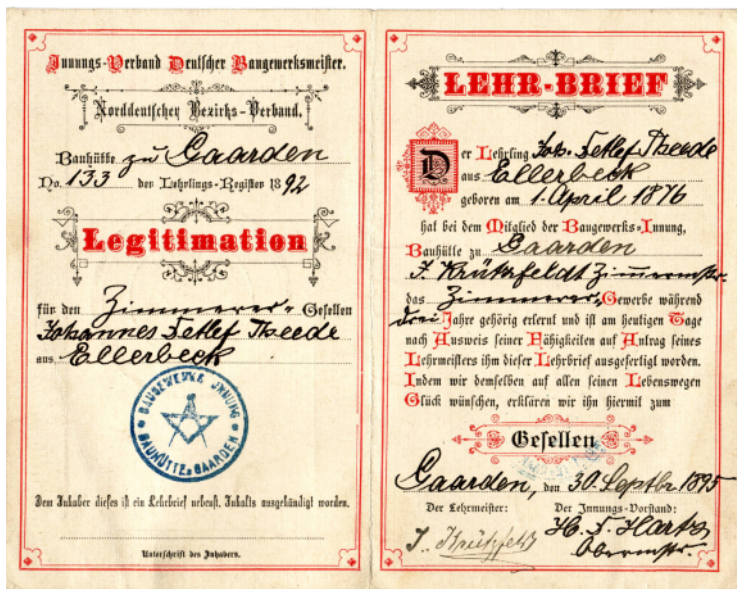 Innungs-Verband Deutscher Baugewerksmeister.
Norddeutscher Bezirks-Verband.
Bauhütte zu Gaarden
No. 133 der Lehrlings-Register 1892
Legitimation
für den Zimmerer- Gesellen
Johannes Detlef Theede
aus Ellerbeck
BAUGEWERKE INNUNG
BAUHÜTTE z. GAARDEN
Dem Inhaber dieses ist ein Lehrbrief nebenst. Inhalts ausgehändigt worden.
Unterschrift des Inhabers.
LEHR-BRIEF
Der Lehrling Joh. Detlef Theede
aus Ellerbeck
geboren am 1. April 1876
hat bei dem Mitglied der Baugewerks-Innung,
Bauhütte zu Gaarden
J. Krützfeldt Zimmermstr.
das Zimmerer- Gewerbe während
drei Jahre gehörig erlernt und ist am heutigen Tage
nach Ausweis seiner Fähigkeiten auf Antrag seines
Lehrmeisters ihm dieser Lehrbrief ausgefertigt worden.
Indem wir demselben auf allen seinen Lebenswegen
Glück wünschen, erklären wir ihn hiermit zum
Gesellen
Gaarden, den 30. Septbr 1895
Der Lehrmeister: Der Innungs-Vorstand:
J. Krützfeldt H. F. Hartz
Obermstr.